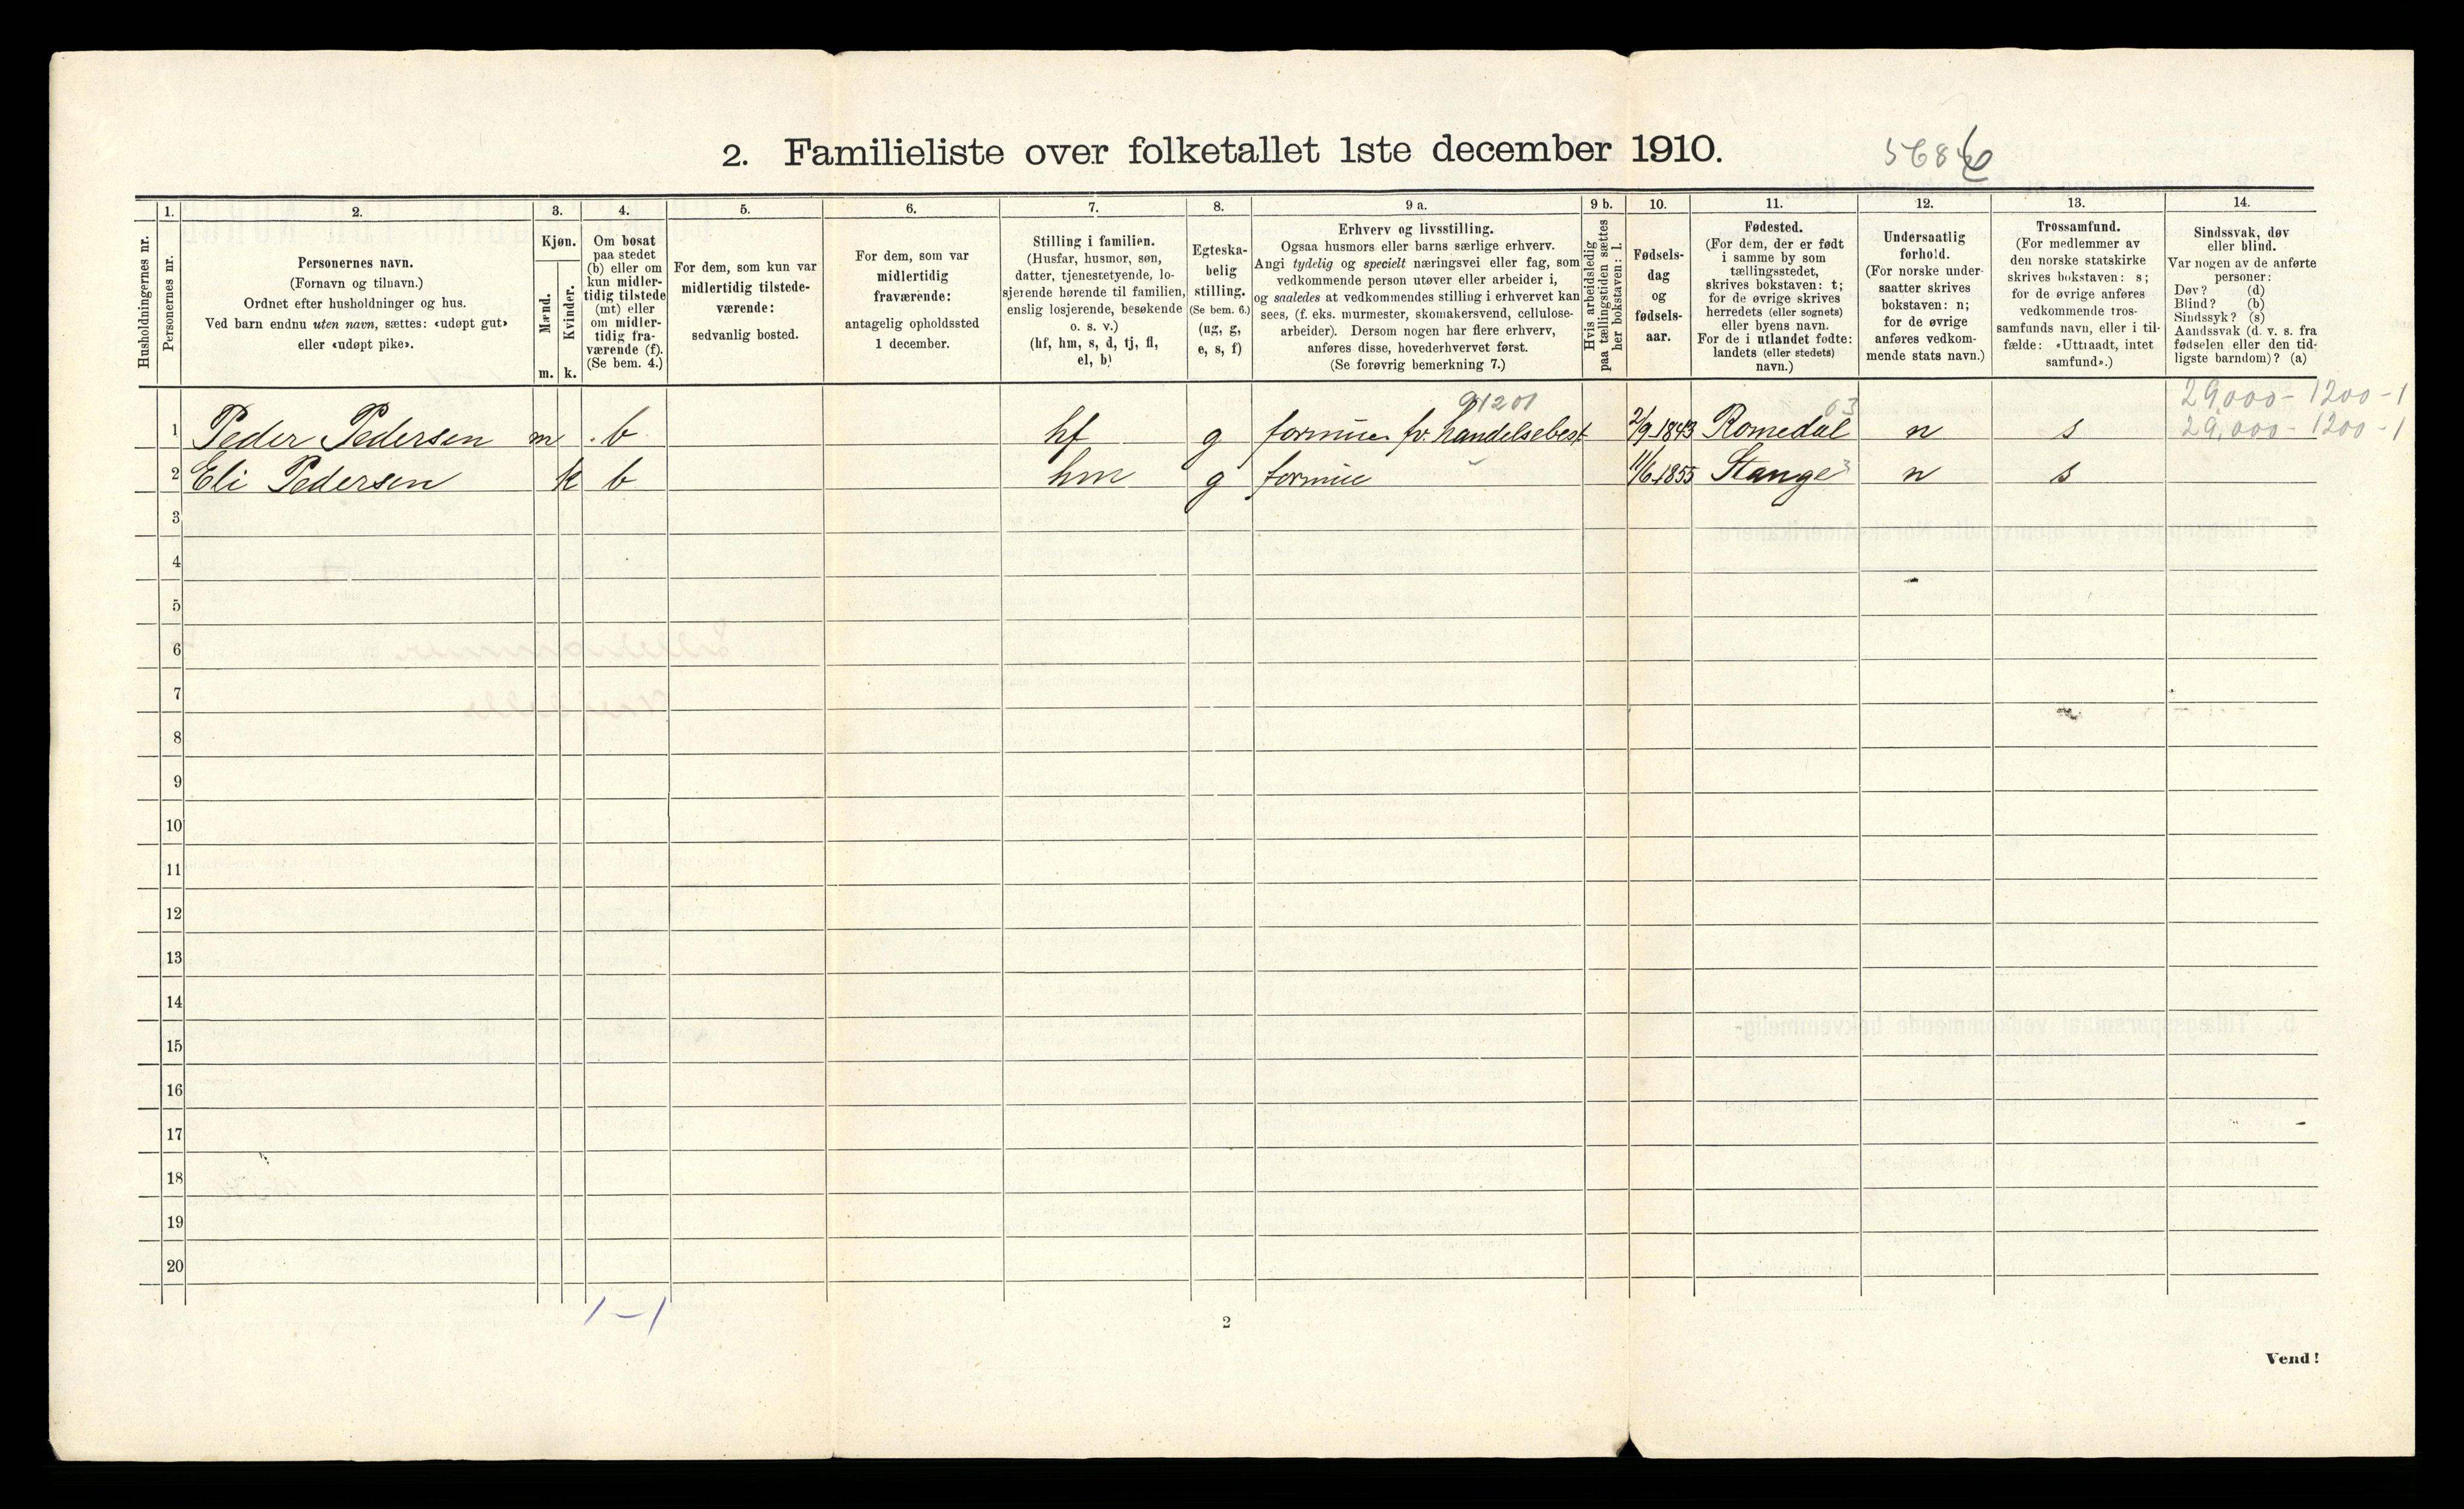 2. Familieliste over folketallet 1ste december 1910.
Husholdningernes nr.
1.
Personernes nr.
2.
Personernes navn.
(Fornavn og tilnavn.)
Ordnet efter husholdninger og hus.
Ved barn endnu uten navn, sættes: «udøpt gut»
eller «udøpt pike».
3.
Kjøn.
Mænd.
Kvinder.
m. k.
4.
Om bosat
paa stedet
(b) eller om
kun midler-
tidig tilstede
(mt) eller
om midler-
tidig fra-
værende (f).
(Se bem. 4.)
5.
For dem, som kun var
midlertidig tilstede-
værende:
sedvanlig bosted.
6.
For dem, som var
midlertidig
fraværende:
antagelig opholdssted
1 december.
7.
Stilling i familien.
(Husfar, husmor, søn,
datter, tjenestetyende, lo-
sjerende hørende til familien,
enslig losjerende, besøkende
o. s. v.)
(hf, hm, s, d, tj, fl,
el, b)
8.
Egteska-
belig
stilling.
(Se bem. 6.)
(ug, g,
e, s, f)
9 a.
Erhverv og livsstilling.
Ogsaa husmors eller barns særlige erhverv.
Angi tydelig og specielt næringsvei eller fag, som
vedkommende person utøver eller arbeider i,
og saaledes at vedkommendes stilling i erhvervet kan
sees, (f. eks. murmester, skomakersvend, cellulose-
arbeider). Dersom nogen har flere erhverv,
anføres disse, hovederhvervet først.
(Se forøvrig bemerkning 7.)
9 b.
Hvis arbeidsledig
paa tællingstiden sættes
her bokstaven: l.
10.
Fødsels-
dag
og
fødsels-
aar.
11.
Fødested.
(For dem, der er født
i samme by som
tællingsstedet,
skrives bokstaven: t;
for de øvrige skrives
herredets (eller sognets)
eller byens navn.
For de i utlandet fødte:
landets (eller stedets)
navn.)
12.
Undersaatlig
forhold.
(For norske under-
saatter skrives
bokstaven: n;
for de øvrige
anføres vedkom-
mende stats navn.)
13.
Trossamfund.
(For medlemmer av
den norske statskirke
skrives bokstaven: s;
for de øvrige anføres
vedkommende tros-
samfunds navn, eller i til-
fælde: «Uttraadt, intet
samfund».)
14.
Sindssvak, døv
eller blind.
Var nogen av de anførte
personer:
Døv? (d)
Blind? (b)
Sindssyk? (s)
Aandssvak (d. v. s. fra
fødselen eller den tid-
ligste barndom)? (a)
91201 03 29,000 - 1200 - 1
1 Peder Pedersen m b hf g formue fv. handelsebest 2/9 1843 Romedal n s 29,000 - 1200 - 1
2 Eli Pedersen k b hm g formue 11/6 1855 Stange 3 n s
3
4
5
6
7
8
9
10
11
12
13
14
15
16
17
18
19
20
1 - 1
2
Vend!